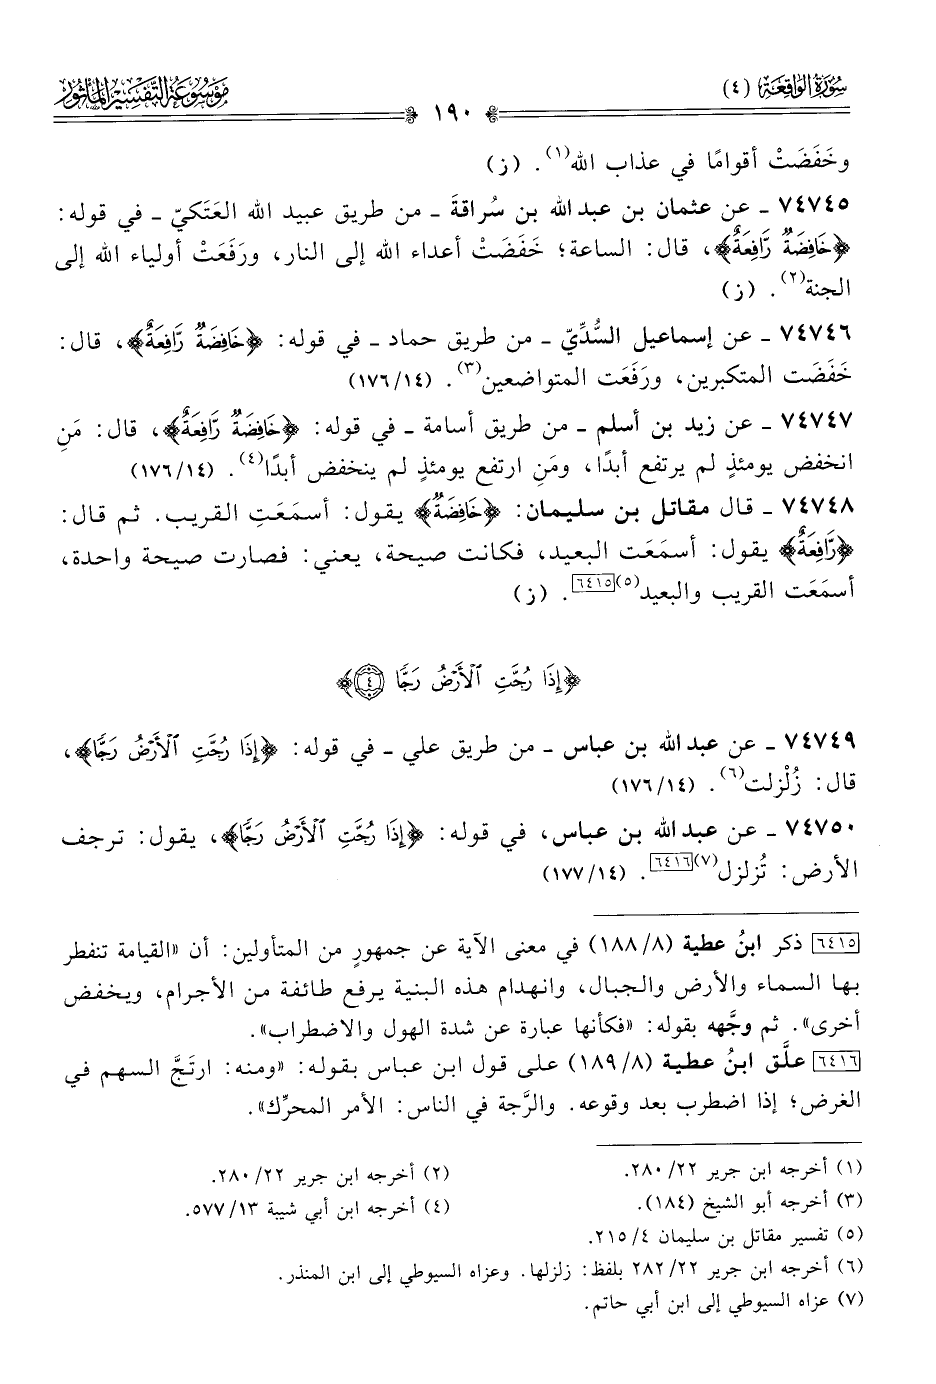 سُورَةُ الوَاقِعَة (٤)
١٩٠
مَوْسُوعَة التَّفْسِير المَأْثُور
وخَفَضَتْ أقوامًا في عذاب الله(١). (ز)
٧٤٧٤٥ - عن عثمان بن عبد الله بن سُراقةَ - من طريق عبيد الله العَتَكيّ - في قوله:
﴿خَافِضَةٌ رَّافِعَةٌ﴾، قال: الساعة؛ خَفَضَتْ أعداء الله إلى النار، ورفَعَتْ أولياء الله إلى
الجنة(٢). (ز)
٧٤٧٤٦ - عن إسماعيل السُّدِّيّ - من طريق حماد - في قوله: ﴿خَافِضَةٌ رَّافِعَةٌ﴾، قال:
خَفَضَت المتكبرين، ورفَعَت المتواضعين(٣). (١٧٦/١٤)
٧٤٧٤٧ - عن زيد بن أسلم - من طريق أسامة - في قوله: ﴿خَافِضَةٌ رَّافِعَةٌ﴾، قال: مَنِ
انخفض يومئذٍ لم يرتفع أبدًا، ومَنِ ارتفع يومئذٍ لم ينخفض أبدًا(٤). (١٧٦/١٤)
٧٤٧٤٨ - قال مقاتل بن سليمان: ﴿خَافِضَةٌ﴾ يقول: أسمَعَتِ القريب. ثم قال:
﴿رَّافِعَةٌ﴾ يقول: أسمَعَت البعيد، فكانت صيحة، يعني: فصارت صيحة واحدة،
أسمَعَت القريب والبعيد(٥)[٦٤١٥]. (ز)
﴿إِذَا رُجَّتِ ٱلْأَرْضُ رَجًّا ٤﴾
٧٤٧٤٩ - عن عبد الله بن عباس - من طريق علي - في قوله: ﴿إِذَا رُجَّتِ ٱلْأَرْضُ رَجًّا﴾،
قال: زُلْزلت(٦). (١٧٦/١٤)
٧٤٧٥٠ - عن عبد الله بن عباس، في قوله: ﴿إِذَا رُجَّتِ ٱلْأَرْضُ رَجًّا﴾، يقول: ترجف
الأرض: تُزلزل(٧)[٦٤١٦]. (١٧٧/١٤)
[٦٤١٥] ذكر ابنُ عطية (١٨٨/٨) في معنى الآية عن جمهورٍ من المتأولين: أن «القيامة تنفطر
بها السماء والأرض والجبال، وانهدام هذه البنية يرفع طائفة من الأجرام، ويخفض
أخرى». ثم وجَّهه بقوله: «فكأنها عبارة عن شدة الهول والاضطراب».
[٦٤١٦] علَّق ابنُ عطية (١٨٩/٨) على قول ابن عباس بقوله: «ومنه: ارتَجَّ السهم في
الغرض؛ إذا اضطرب بعد وقوعه. والرَّجة في الناس: الأمر المحرِّك».
(١) أخرجه ابن جرير ٢٨٠/٢٢.
(٢) أخرجه ابن جرير ٢٨٠/٢٢.
(٣) أخرجه أبو الشيخ (١٨٤).
(٤) أخرجه ابن أبي شيبة ٥٧٧/١٣.
(٥) تفسير مقاتل بن سليمان ٢١٥/٤.
(٦) أخرجه ابن جرير ٢٨٢/٢٢ بلفظ: زلزلها. وعزاه السيوطي إلى ابن المنذر.
(٧) عزاه السيوطي إلى ابن أبي حاتم.